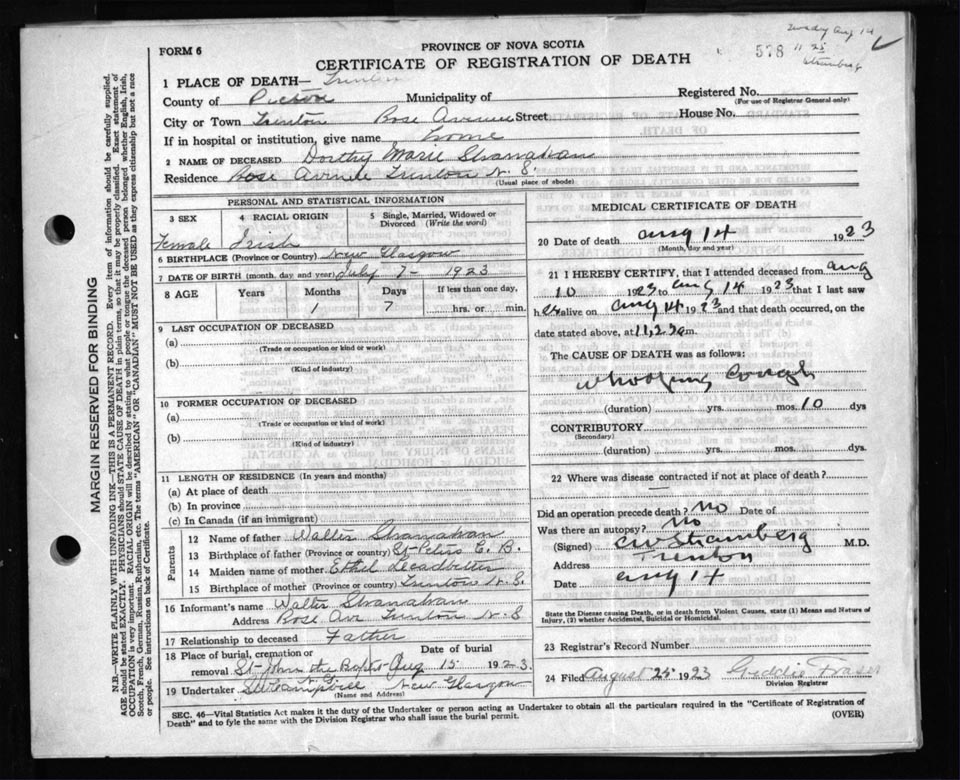 Tuesday Aug 14
11 25
Stramberg
578
FORM 6
PROVINCE OF NOVA SCOTIA
CERTIFICATE OF REGISTRATION OF DEATH
1 PLACE OF DEATH— Trenton
County of Pictou Municipality of
Registered No.
(For use of Registrar General only)
City or Town Trenton Rose Avenue Street House No.
If in hospital or institution, give name home
2 NAME OF DECEASED Dorothy Marie Stranahan
Residence Rose Avenue Trenton N. S.
(Usual place of abode)
PERSONAL AND STATISTICAL INFORMATION
3 SEX 4 RACIAL ORIGIN 5 Single, Married, Widowed or Divorced (Write the word)
Female Irish
6 BIRTHPLACE (Province or Country) New Glasgow
7 DATE OF BIRTH (month, day and year) July 7- 1923
8 AGE Years Months Days If less than one day,
1 7 hrs. or min.
9 LAST OCCUPATION OF DECEASED
(a)
(Trade or occupation or kind or work)
(b)
(Kind of industry)
10 FORMER OCCUPATION OF DECEASED
(a)
(Trade or occupation or kind of work)
(b)
(Kind of industry)
11 LENGTH OF RESIDENCE (In years and months)
(a) At place of death
(b) In province
(c) In Canada (if an immigrant)
Parents
12 Name of father Walter Stranahan
13 Birthplace of father (Province or country) St Peters C. B.
14 Maiden name of mother Ethel Leadbetter
15 Birthplace of mother (Province or country) Trenton N. S.
16 Informant's name Walter Stranahan
Address Rose Ave Trenton N- S
17 Relationship to deceased Father
18 Place of burial, cremation or removal Date of burial
St- John the Aug 15 1923
N. G.
19 Undertaker Campbell New Glasgow
(Name and Address)
MEDICAL CERTIFICATE OF DEATH
20 Date of death Aug 14 1923
(Month, day and year)
21 I HEREBY CERTIFY, that I attended deceased from Aug
10 1923 to Aug 14 1923 that I last saw
her alive on Aug 14 1923 and that death occurred, on the
date stated above, at 11,23 am.
The CAUSE OF DEATH was as follows:
Whooping Cough
(duration) yrs. mos. 10 dys
CONTRIBUTORY
(Secondary)
(duration) yrs. mos. dys.
22 Where was disease contracted if not at place of death?
Did an operation precede death? No Date of
Was there an autopsy? No
(Signed) C W Stramberg M.D.
Address Trenton
Date Aug 14
State the Disease causing Death, or in death from Violent Causes, state (1) Means and Nature of
Injury, (2) whether Accidental, Suicidal or Homicidal.
23 Registrar's Record Number
24 Filed August 25 1923 Fraser
Division Registrar
SEC. 46—Vital Statistics Act makes it the duty of the Undertaker or person acting as Undertaker to obtain all the particulars required in the "Certificate of Registration of
Death" and to fyle the same with the Division Registrar who shall issue the burial permit.
(OVER)
MARGIN RESERVED FOR BINDING
N.B.—WRITE PLAINLY WITH UNFADING INK—THIS IS A PERMANENT RECORD. Every item of information should be carefully supplied.
AGE should be stated EXACTLY. PHYSICIANS should STATE CAUSE OF DEATH in plain terms, so that it may be properly classified. Exact statement of
OCCUPATION is very important. RACIAL ORIGIN will be described by stating to what people or tongue the deceased person belonged, whether English, Irish,
Scotch, French, German, Russian, Ruthenian, etc. The terms "AMERICAN" OR "CANADIAN" MUST NOT BE USED as they express citizenship but not a race
or people. See instructions on back of Certificate.